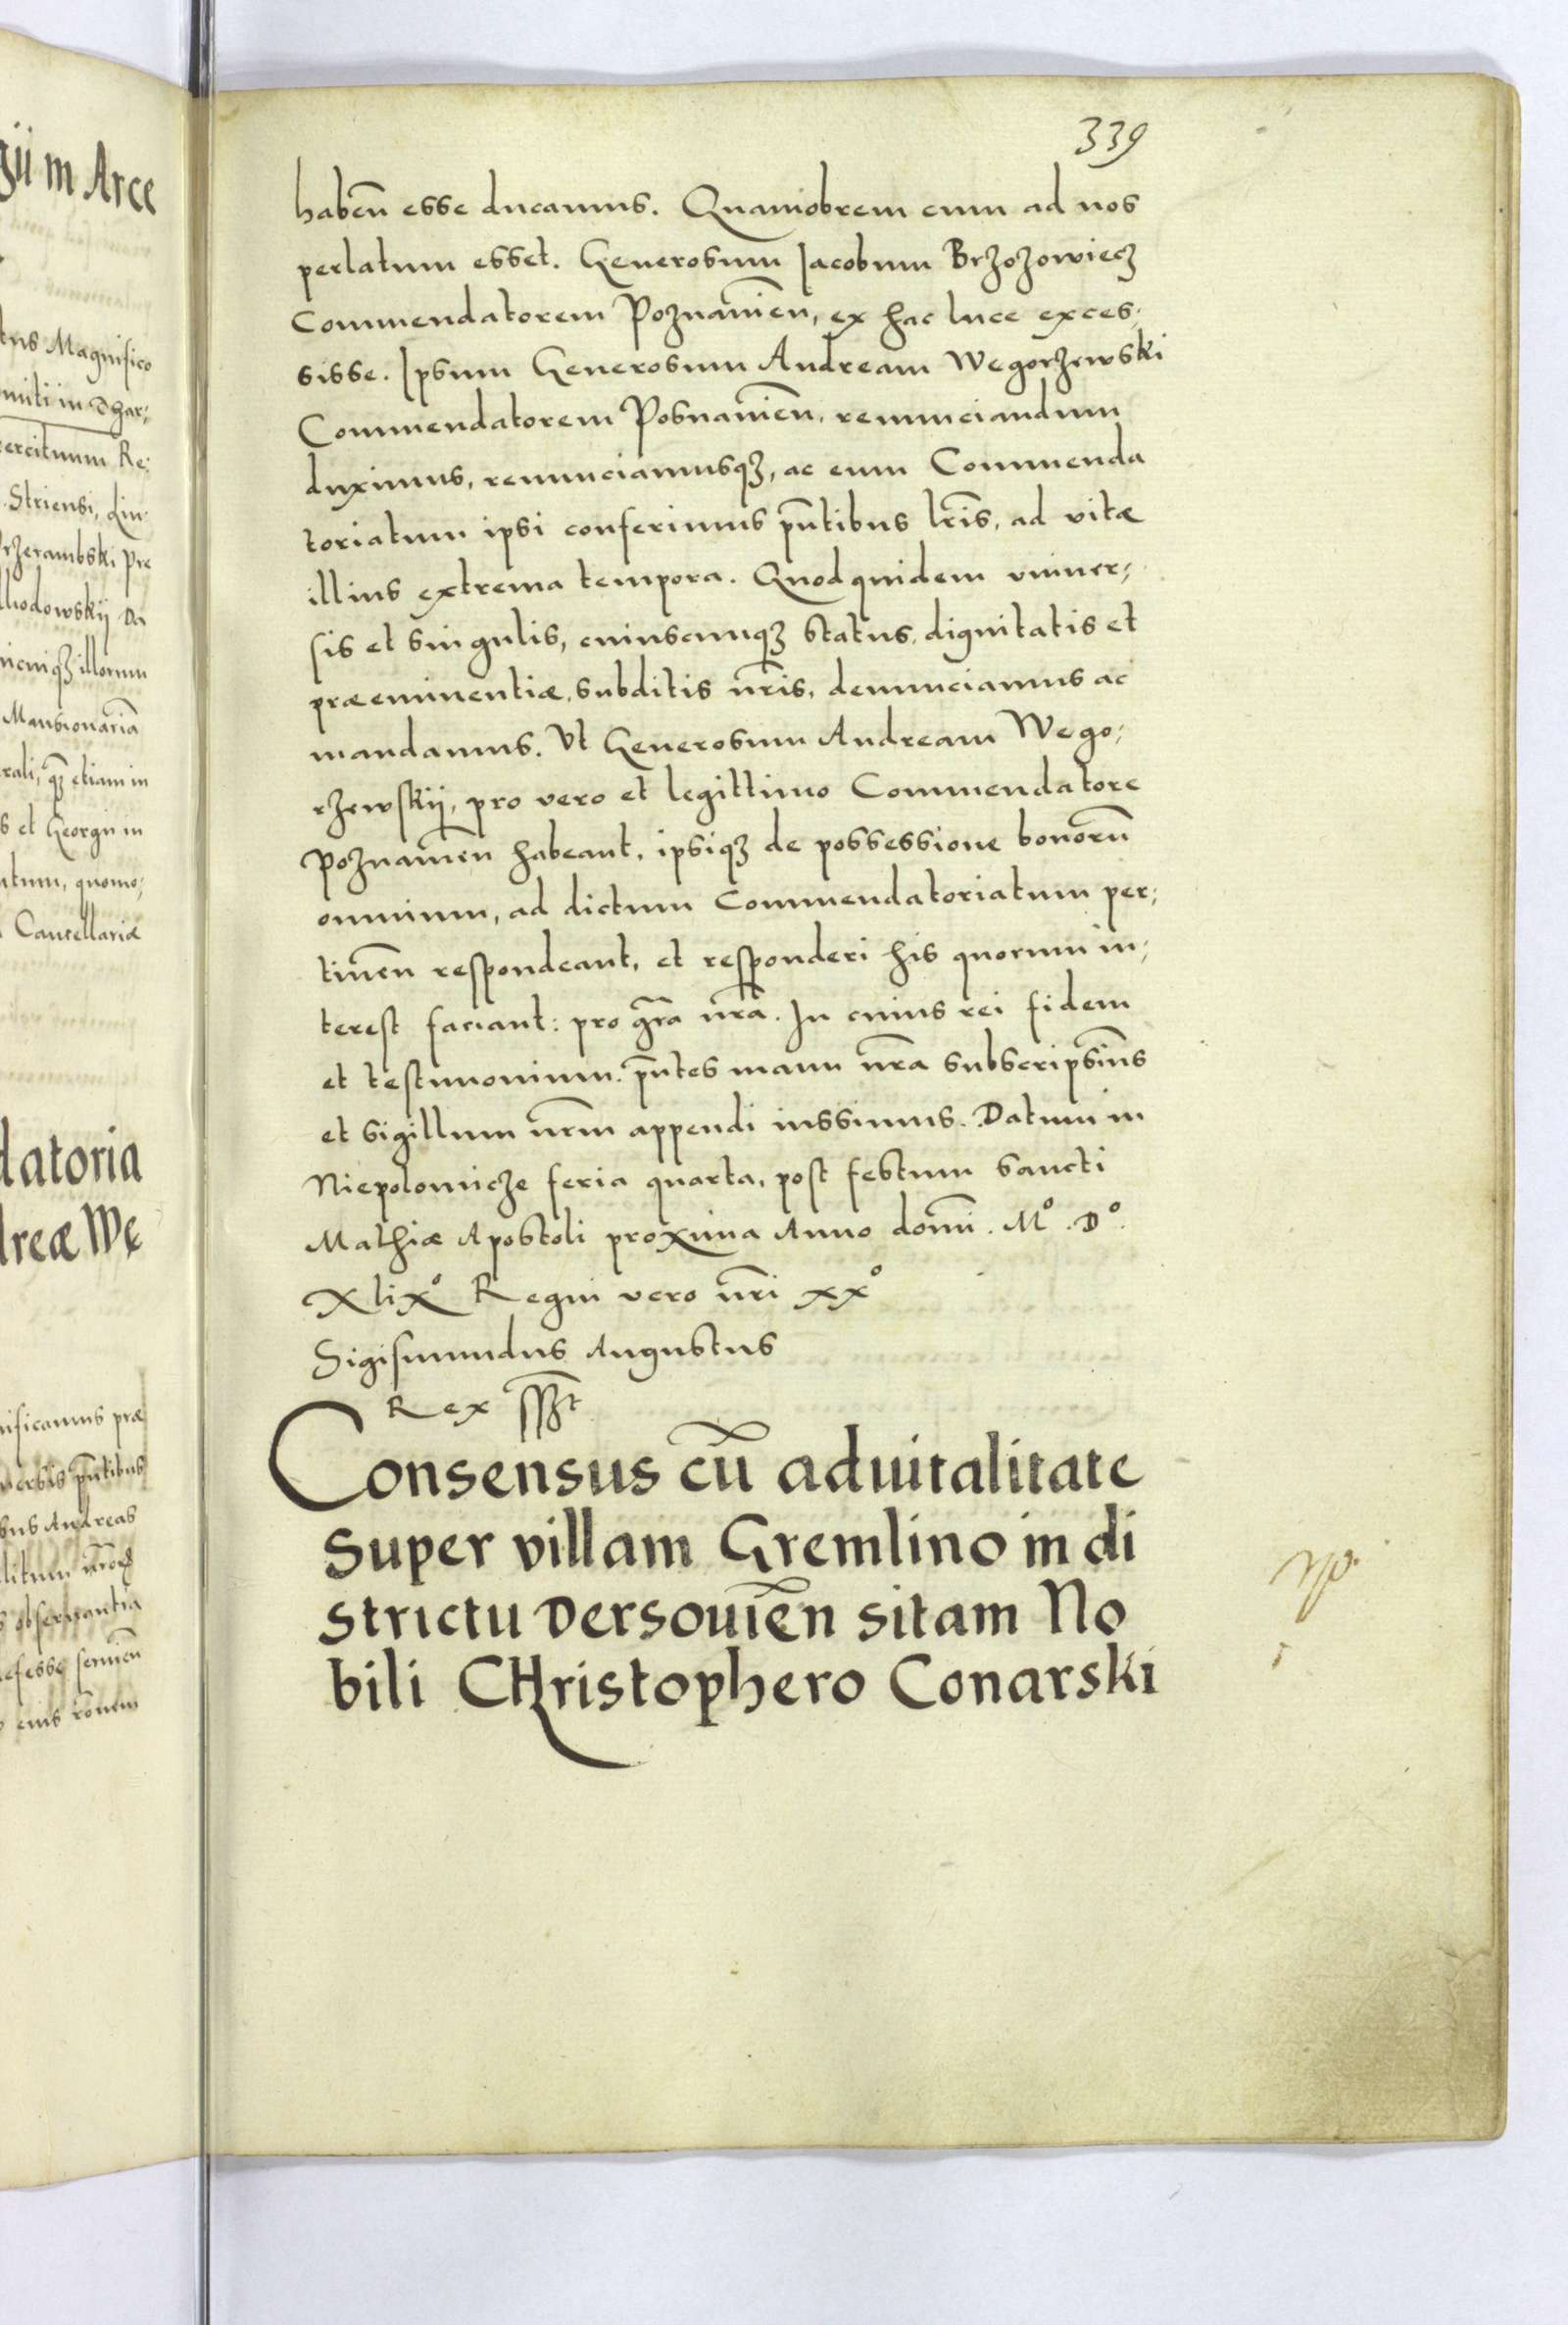 339
habeñ esse ducamus. Quamobrem cum ad nos
perlatum esset. Generosum Jacobum Brzozowiecz
Commendatorem Poznanieñ, ex hac luce exces,
sisse. Ipsum Generosum Andream Wegorzewski
Commendatorem Posnanieñ, renunciandum
duximus, renunciamusqȝ, ac eum Commenda
toriatum ipsi conferimus pñtibus lr̃is, ad vitæ
illius extrema tempora. Quod quidem vniuer,
sis et singulis, cuiuscunqȝ status, dignitatis et
præeminentiæ, subditis nr̃is, denunciamus ac
mandamus. Vt Generosum Andream Wego,
rzewskij, pro vero et legittimo Commendatore
Poznanieñ habeant, ipsiqȝ de possessione bonorũ
omnium, ad dictum Commendatoriatum per,
tineñ respondeant, et responderi his quorum in,
terest faciant: pro gr̃a nr̃a. In cuius rei fidem
et testimonium. pñtes manu nr̃a subscripsim̃s
et sigillum nr̃m appendi iussimus. Datum in
Niepolomicze feria quarta, post festum Sancti
Mathiæ Apostoli proxima Anno domĩ. Mº. Dº.
Xlixº Regni vero nr̃i xxº
Sigismundus Augustus
Rex
Consensus cũ aduitalitate
super villam Gremlino in di
strictu Dersouieñ sitam No
bili CHristophero Conarski
gii in Arce
Magnifico
Striensi, Lin
illorum
Mansionariã
rali, qȝ etiam in
s et Georgii in
ntum, quomo,
Cancellariæ
datoria
dreæ We
nificamus præ
pñtibus
Andreas
obseruantia
eius rõnem